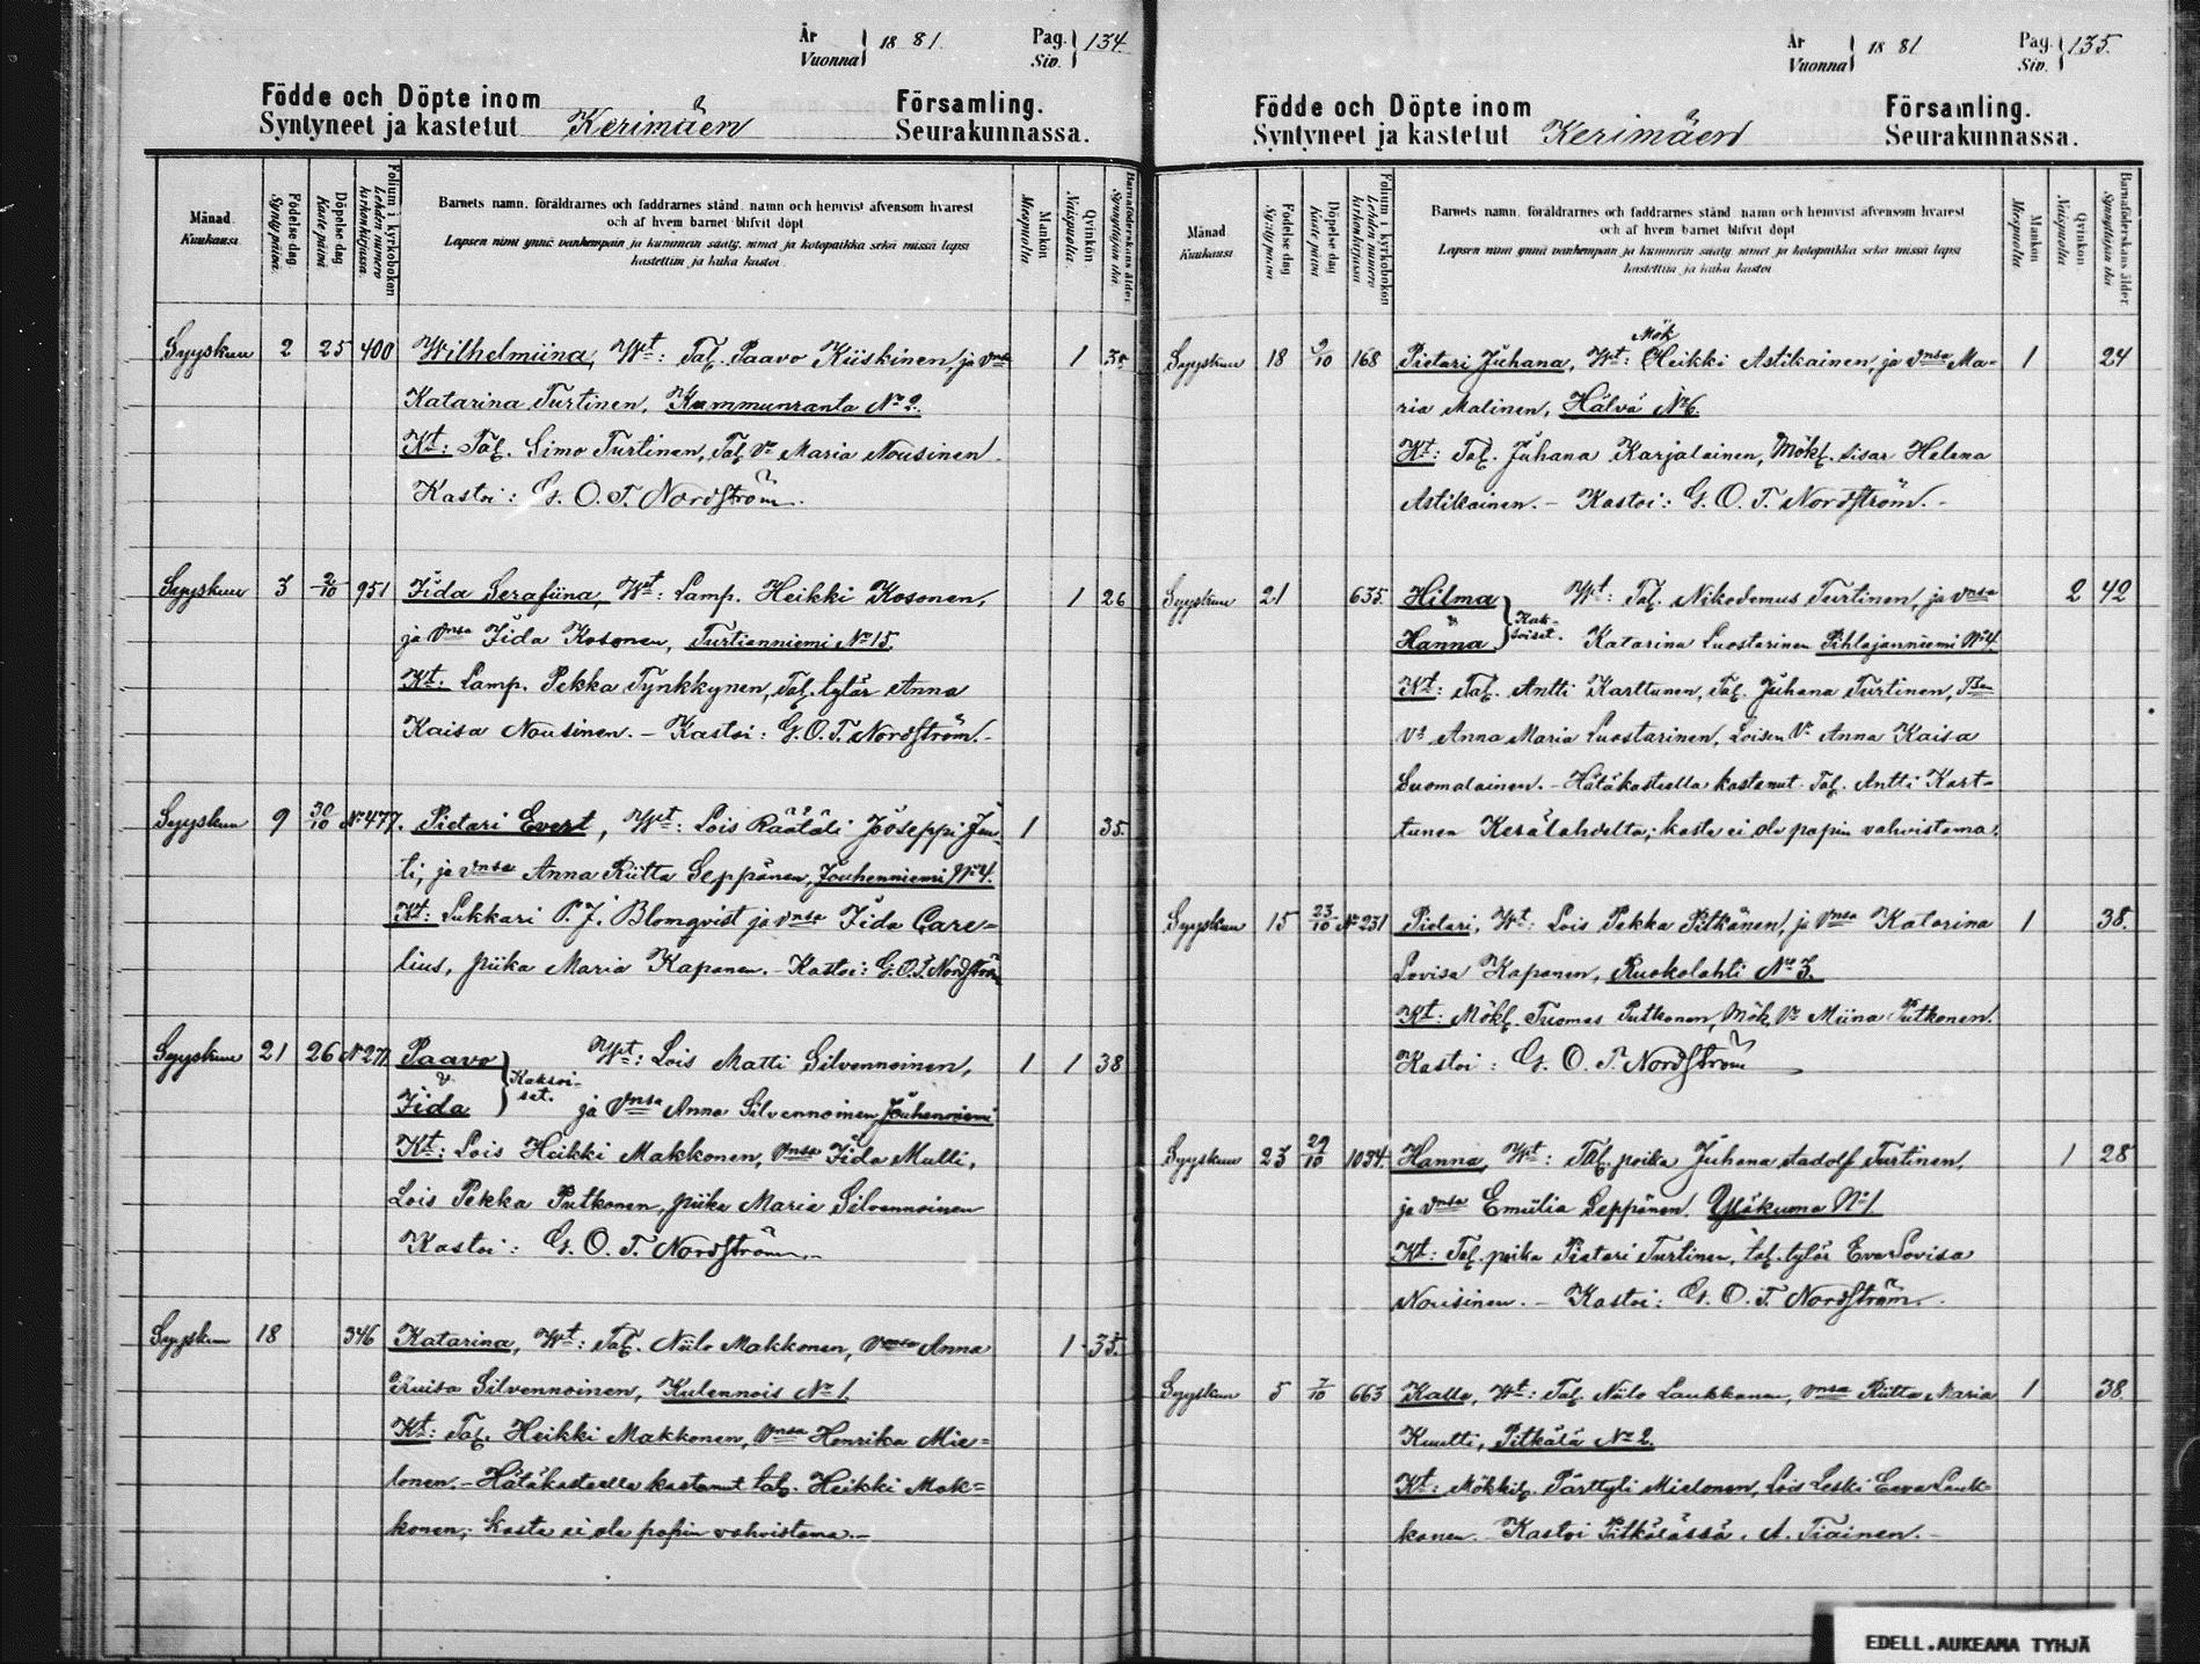 År
Vuonna } 18 81. Pag. Siv. } 134.
Födde och Döpte inom Församling.
Syntyneet ja kastetut Kerimäen Seurakunnassa.
Månad. Kuukausi.
Födelse dag Synty päivä.
Döpelse dag Kaste päivä
Folium i kyrkoboken Lehden numero kirkonkirjassa
Barnets namn, föräldrarnes och faddrarnes stånd, namn och hemvist äfvensom hvarest
och af hvem barnet blifvit döpt
Lapsen nimi ynnä vanhempain ja kummein sääty, nimet ja kotopaikka sekä missä lapsi
kastettiin ja kuka kastoi.
Mankön Miespuolia
Qvinkön Naispuolia
Barnaföderskans ålder. Synnyttäjän ikä.
Syyskuu 2 25 400 Wilhelmiina, Wt: Tal. Paavo Kiiskinen, ja vnsa 1 35.
Katarina Turtinen, Kummunranta No 2.
Kt: Tal. Simo Turtinen, Tal. Vo Maria Nousinen.
Kastoi: G. O. T. Nordström.
Syyskuu 3 2/10 951 Iida Serafiina, Wt: Lamp. Heikki Kosonen, 1 26
ja Vnsa Iida Kosonen, Turtianniemi No 15.
Kt: Lamp. Pekka Tynkkynen, Tal. tytär Anna
Kaisa Nousinen. – Kastoi: G. O. T. Nordström.-
Syyskuu 9 30/10 No 477. Pietari Evert, Wt: Lois Räätäli Jooseppi Jun- 1 35.
ti, ja vnsa Anna Riitta Seppänen, Jouhenniemi No 4.
Kt: Lukkari P. J. Blomqvist ja vnsa Iida Care=
lius, piika Maria Kaponen. – Kastoi: G. O. T. Nordström
Syyskuu 21 26 No 271 Paavo } Kaksoi- Wt: Lois Matti Silvennoinen, 1 1 38
Iida } set. ja Vnsa Anna Silvennoinen Jouhenniemi
Kt: Lois Heikki Makkonen, Vnsa Iida Multi,
Lois Pekka Putkonen, piika Maria Silvennoinen
Kastoi: G. O. T. Nordström.-
Syyskuu 18 346 Katarina, Wt: Tal. Niilo Makkonen, Vnsa Anna 1 35.
Silvennoinen, Kulennois No 1.
Kt: Tal. Heikki Makkonen, Vnsa Henrika Mie=
lonen. – Hätäkasteella kastanut tal. Heikki Mak=
konen; kaste ei ole papin vahvistama.-
År
Vuonna } 18 81 Pag. Siv. } 135.
Födde och Döpte inom Församling.
Syntyneet ja kastetut Kerimäen Seurakunnassa.
Månad Kuukausi
Födelse dag Synty päivä
Döpelse dag Kaste päivä
Folium i kyrkoboken Lehden numero kirkonkirjassa
Barnets namn, föräldrarnes och faddrarnes stånd namn och hemvist äfvensom hvarest
och af hvem barnet blifvit döpt
Lapsen nimi ynnä vanhempain ja kummein sääty nimet ja kotopaikka sekä missä lapsi
kastettiin ja kuka kastoi
Mankön Miespuolia
Qvinkön Naispuolia
Barnaföderskans ålder. Synnyttäjän ikä
Mök
Syyskuu 18 2/10 168 Pietari Juhana, Wt: Heikki Astikainen, ja vnsa Ma- 1 24
ria Malinen, Hälvä No 6.
Kt: Tal. Juhana Karjalainen, Mökl. sisar Helena
Astikainen. – Kastoi: G. O. T. Nordström.-
Syyskuu 21 635 Hilma } Kak- Wt: Tal. Nikodemus Turtinen, ja vnsa 2 42
Hanna } soiset. Katarina Luostarinen Pihlajanniemi No 4.
Kt: Tal. Antti Karttunen, Tal. Juhana Turtinen,
Vo Anna Maria Luostarinen, Loisen Vo Anna Kaisa
Suomalainen. – Hätäkasteella kastanut Tal. Antti Kart-
tunen Kesälahdelta; kaste ei ole papin vahvistama.
Syyskuu 15 23/10 No 231 Pietari, Wt: Lois Pekka Pitkänen, ja Vnsa Katarina 1 38.
Lovisa Kaponen, Ruokolahti No 3.
Kt: Mökl. Tuomas Putkonen, Mök. Vo Miina Putkonen.
Kastoi: G. O. T. Nordström
Syyskuu 23 29/10 1034. Hanna, Wt: Tal. poika Juhana Aadolf Turtinen, 1 28
ja vnsa Emiilia Seppänen. Yläkuona No 1.
Kt: Tal. poika Pietari Turtinen, tal. tytär Eva Lovisa
Nousinen. – Kastoi: G. O. T. Nordström.
Syyskuu 5 7/10 663 Kalle, Wt: Tal. Niilo Laukkanen, vnsa Riitta Maria 1 38.
Kuutti, Pitkälä No 2.
Kt: Mökkil. Pärttyli Mielonen, Lois Leski Eeva Lauk-
kanen. Kastoi Pitkälässä. A. Tiainen.-
EDELL.AUKEAMA TYHJÄ